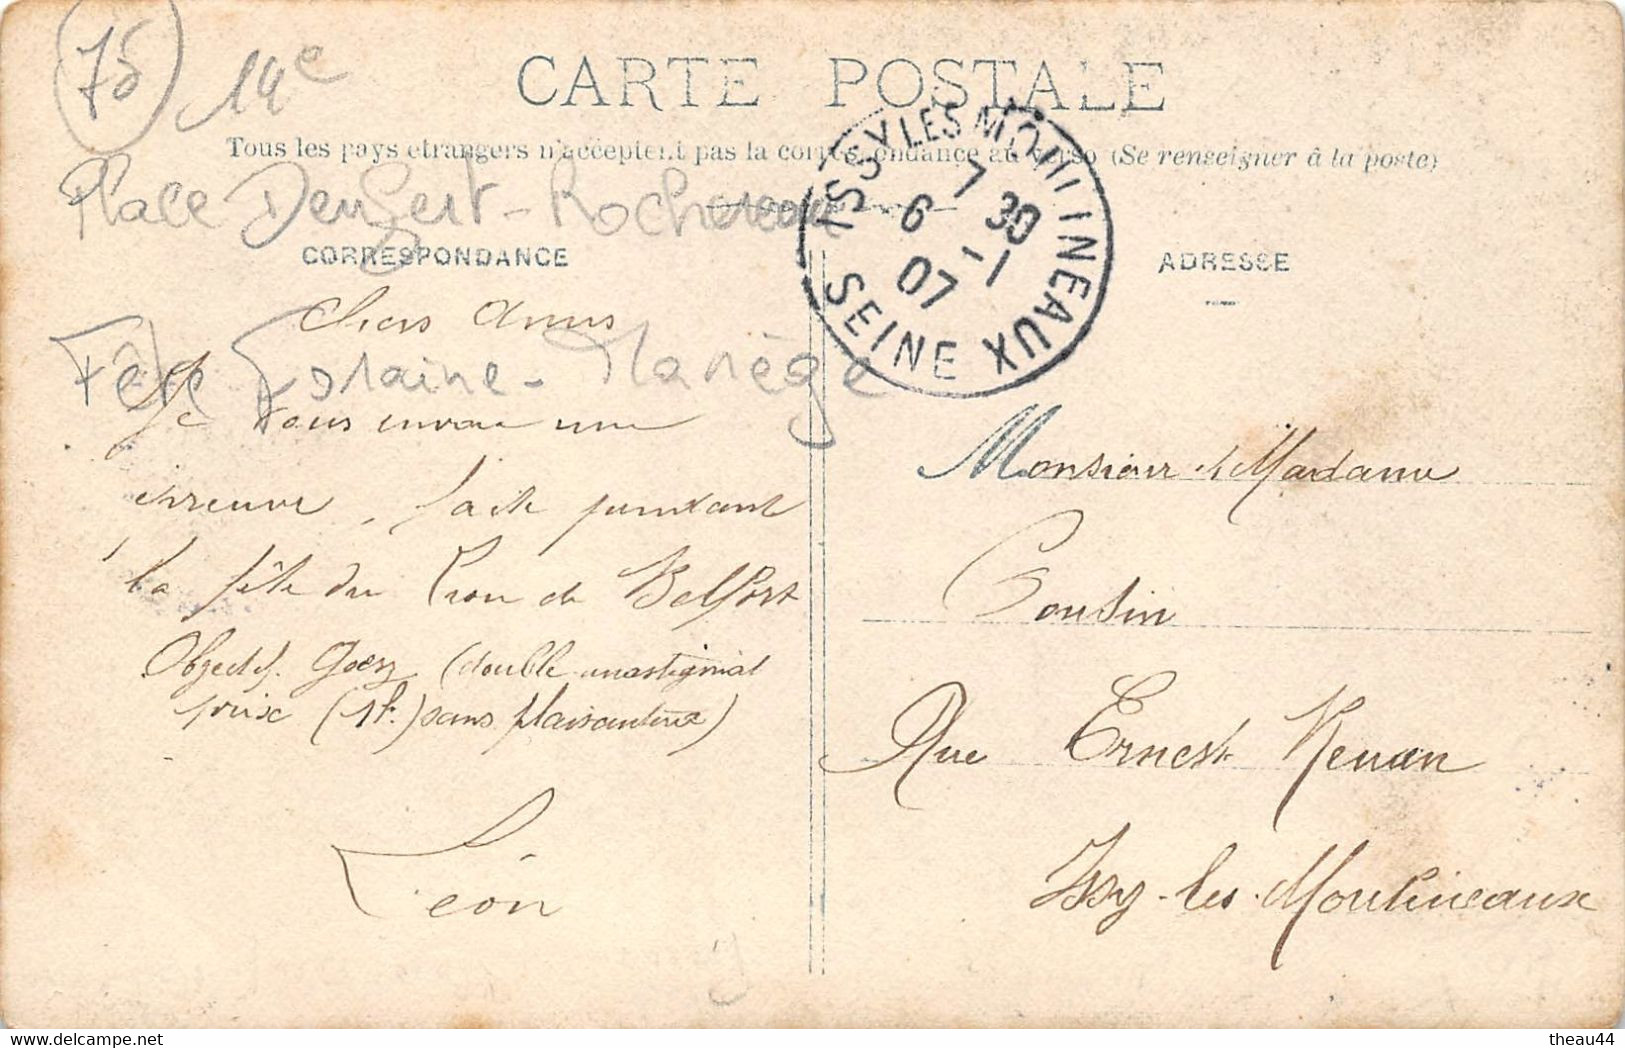 75
14e
CARTE POSTALE
Tous les pays etrangers n'acceptent pas la correspondance au verso (Se renseigner à la poste)
Place Denfert-Rochereau
CORRESPONDANCE
ADRESSE
ISSY LES MOULINEAUX
7 30
6 -1
07
SEINE
Chers Amis
Fête Foraine - Manège
Je vous envoie une
épreuve, faite pendant
la fête du Lion de Belfort
Objectif. Goerz (double anastigmat
prix (1f.) sans plaisanterie)
Léon
Monsieur et Madame
Cousin
Rue Ernest Renan
Issy-les-Moulineaux
delcampe.net
theau44